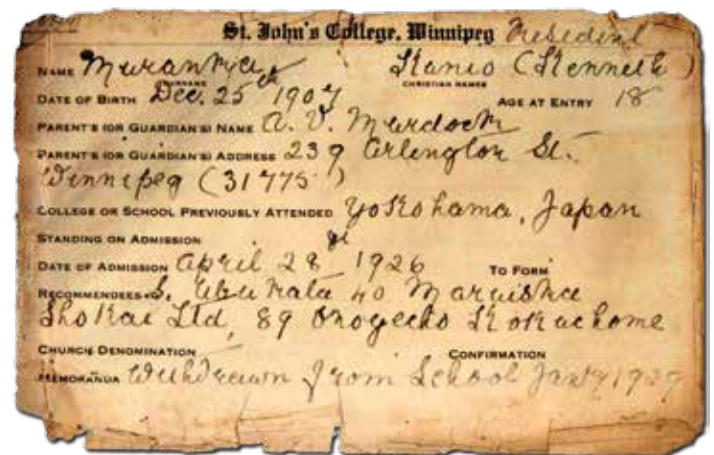 St. John's College, Winnipeg Resident
NAME Kaneo (Kenneth)
SURNAME CHRISTIAN NAMES
DATE OF BIRTH Dec. 25th 1907 AGE AT ENTRY 18
PARENT'S (OR GUARDIAN'S) NAME A. V. Murdoch
PARENT'S (OR GUARDIAN'S) ADDRESS 239 Arlington St.
Winnipeg (31775)
COLLEGE OR SCHOOL PREVIOUSLY ATTENDED Yokohama, Japan
STANDING ON ADMISSION
DATE OF ADMISSION April 28 1926 TO FORM
RECOMMENDED S.
Shokai Ltd, 89
CHURCH DENOMINATION CONFIRMATION
MEMORANDA Withdrawn from School